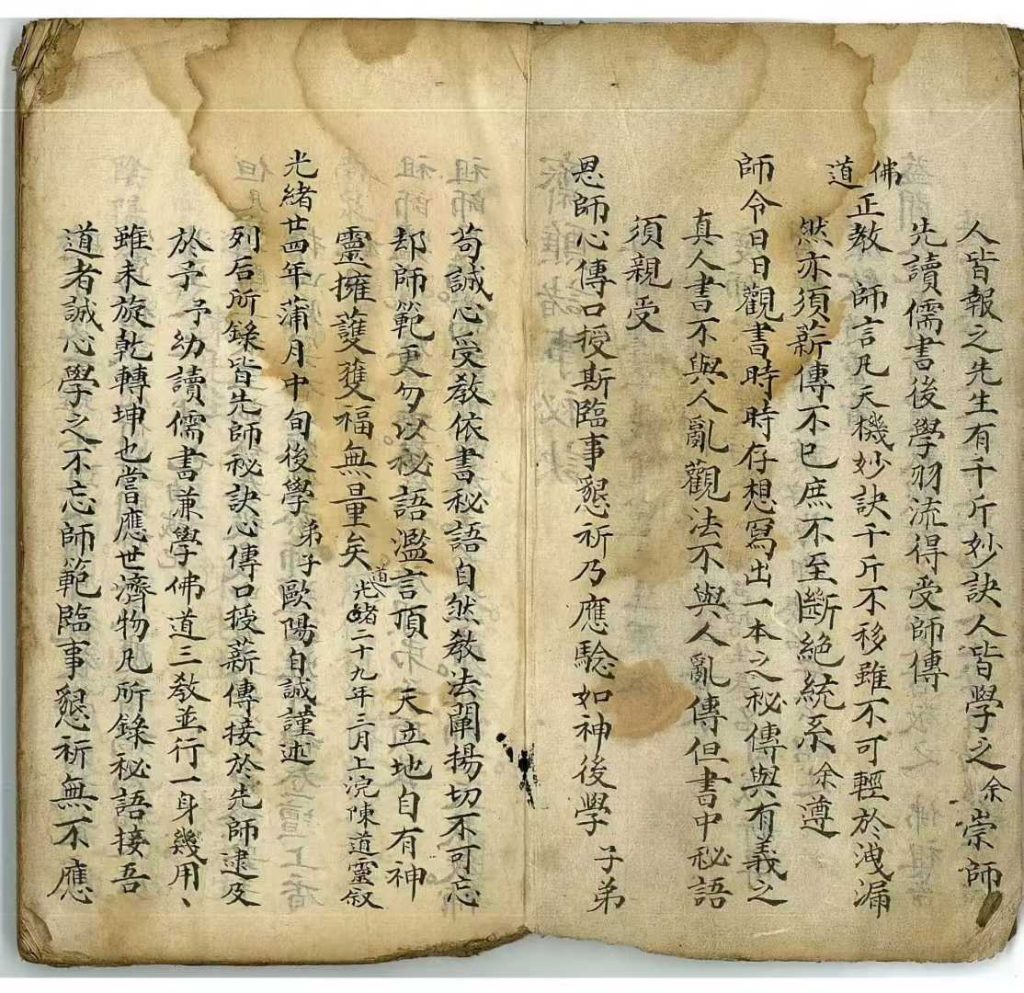 人皆報之先生有千斤妙訣人皆學之余崇師
先讀儒書後學羽流得受師傳
佛道正教 師言凡天機妙訣千斤不移雖不可輕於洩漏
然亦須薪傳不已庶不至斷絕統系余遵
師令日日觀書時時存想寫出一本之秘傳與有義之
真人書不與人亂觀法不與人亂傳但書中秘語
須親受
恩師心傳口授斯臨事懇祈乃應驗如神後學子弟
苟誠心受教依書秘語自然教法闡揚切不可忘
却師範更勿以秘語濫言頂弟天立地自有神
靈擁護獲福無量矣 道光緒二十九年三月上浣陳道靈敘
光緒廿四年蒲月中旬後學弟子歐陽自誠謹述
列后所錄皆先師秘訣心傳口授薪傳接於先師逮及
於予予幼讀儒書兼學佛道三教並行一身幾用、
雖未旋乾轉坤也嘗應世濟物凡所錄秘語接吾
道者誠心學之不忘師範臨事懇祈無不應